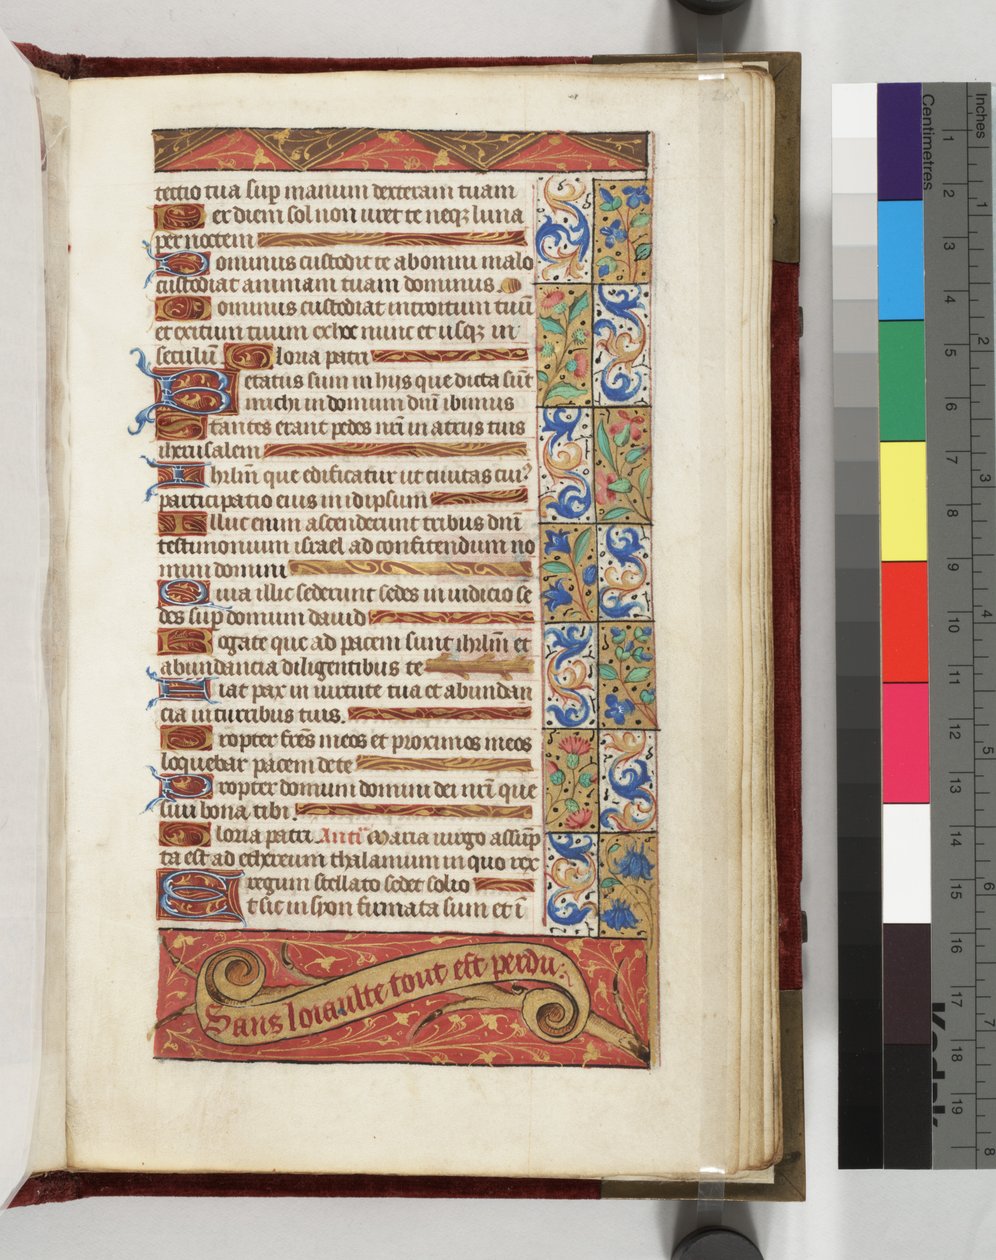 tectio tua sup manum dexteram tuam
Per diem sol non uret te neqz luna
per noctem
Dominus custodit te ab omni malo
custodiat animam tuam dominus
Dominus custodiat introitum tuū
et exitum tuum ex hoc nunc et usqz in
seculū. Gloria patri
Letatus sum in hys que dicta sūt
michi in domum dnī ibimus
Stantes erant pedes nrī in atriis tuis
iherusalem
Ihrlm̄ que edificatur ut ciuitas cui9
participatio eius in idipsum
Illuc enim ascenderunt tribus dnī
testimonium israel ad confitendum no
mini domini
Quia illic sederunt sedes in iudicio se
des sup domum dauid
Rogate que ad pacem sunt ihrlm̄ et
abundancia diligentibus te
Fiat pax in uirtute tua et abundan
cia in turribus tuis.
Propter fr̄es meos et proximos meos
loquebar pacem de te
Propter domum domini dei nrī que
siui bona tibi.
Gloria patri. Antī Maria uirgo assūp
ta est ad ethereum thalamum in quo rex
regum stellato sedet solio
Et sic in syon firmata sum et ī
Sans loiaulte tout est perdu
Inches
1 2 3 4 5 6 7 8
Centimetres
1 2 3 4 5 6 7 8 9 10 11 12 13 14 15 16 17 18 19
Kodak